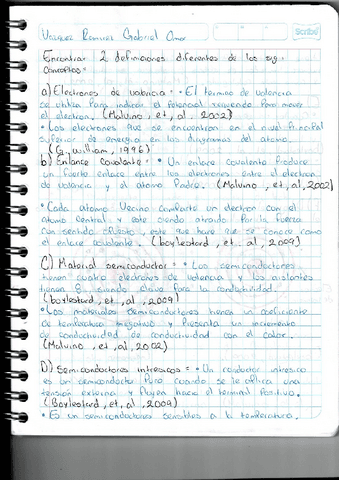 Vazquez Ramirez Gabriel Omar
Scribe
Encontrar 2 definiciones diferentes de los sig.
Conceptos=
a) Electrones de valencia = • El termino de valencia
se utiliza Para indicar el Potencial requerido Para mover
el electron. (Malvino, et, al, 2002)
• Los electrones que se encuentran en el nivel Principal
de energia en los diagramas del atomo.
(G. william, 1996)
b) Enlance covalente = • Un enlace covalente Produce
un fuerte enlace entre los electrones entre el electron
de valencia y el atomo Padre. (Malvino, et, al, 2002)
• Cada atomo Vecino comparte un electron con el
atomo central y este siendo atraido Por la fuerza
con sentido opuesto, este que hace que se conoce como
el enlace covalente. (boylestard, et, al, 2009)
C) Material semiconductor = • Los semiconductores
tienen cuatro electrones de valencia y los aislantes
tienen 8, siendo clave para la conductividad.
(boylestard, et, al, 2009)
• Los materiales semiconductores tienen un coeficiente
de temperatura negativo y Presenta un incremento
de conductividad con el calor.
(Malvino, et, al, 2002)
D) Semiconductores intresicos = • Un conductor intresico
es un semiconductor Puro cuando se le aplica una
tension externa y fluyen hacia el terminal Positivo.
(Boylestard, et, al, 2009)
• Es un semiconductores sensibles a la temperatura.